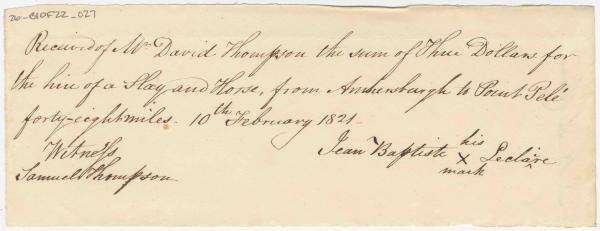 20-B10F22_027
Received of Mr David Thompson the sum of Three Dollars for
the hire of a Slay and Horse, from Amhersburgh to Point Pelé
forty-eight miles. 10th February 1821.
Witness
Samuel Thompson
Jean Baptiste his X mark Leclare